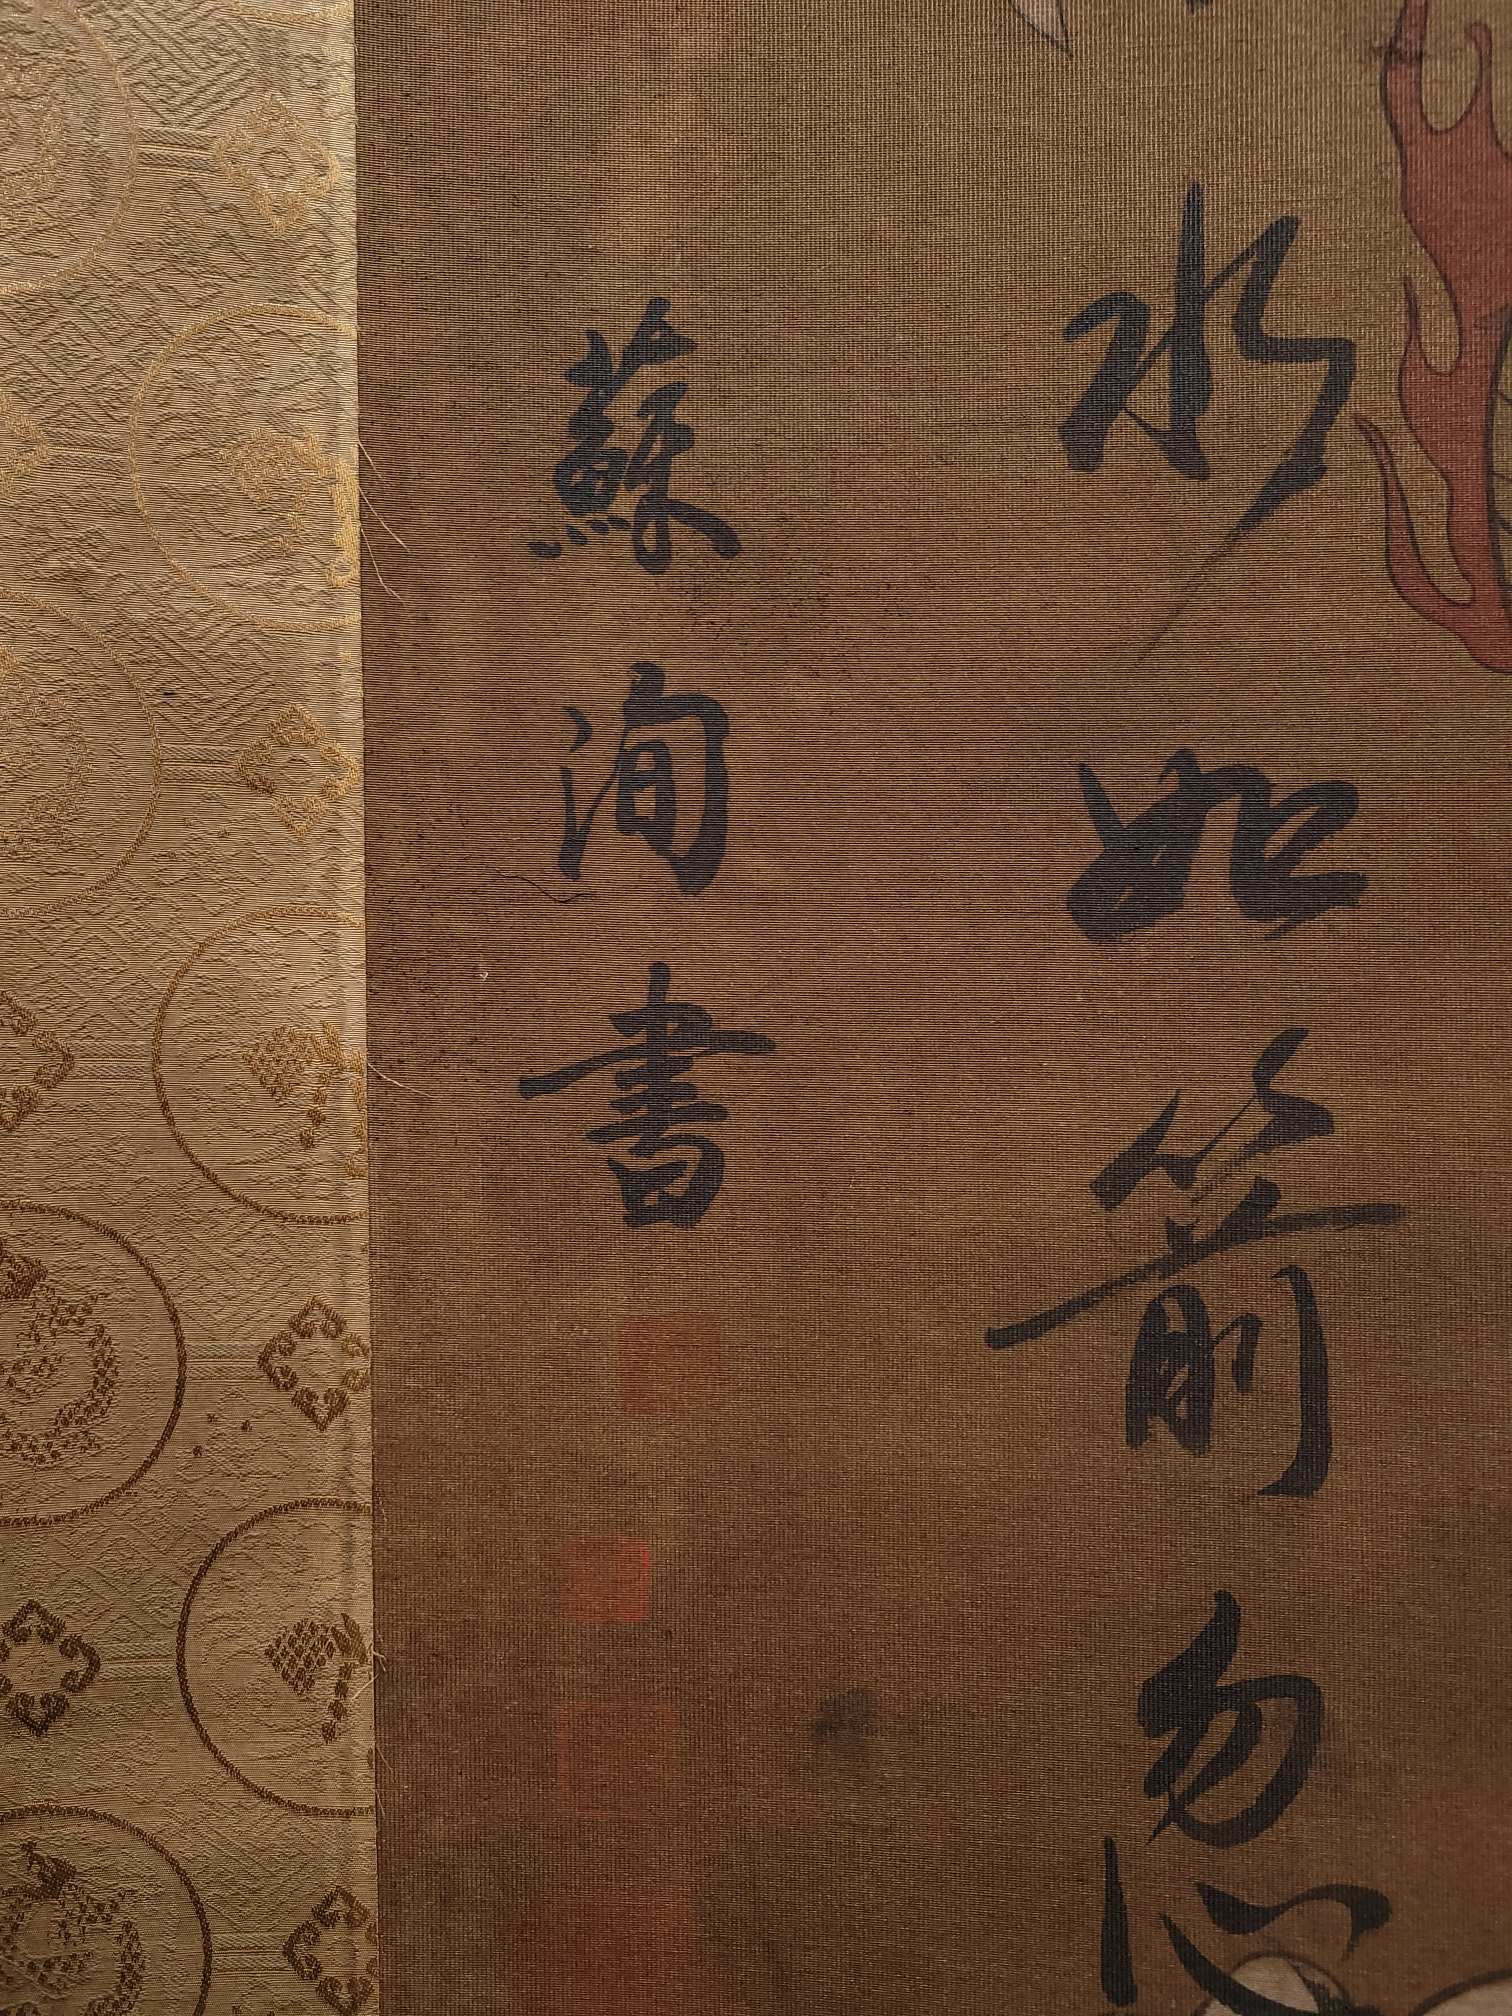 水如箭忽
蘇洵書